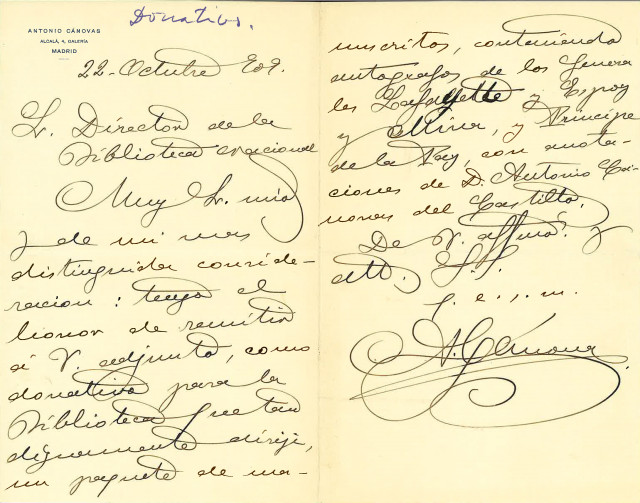 Donativo.
ANTONIO CÁNOVAS
ALCALÁ, 4, GALERÍA
MADRID
22-Octubre 909.
Sr. Director de la
Biblioteca Nacional
Muy Sr. mio
y de mi mas
distinguida conside-
racion: tengo el
honor de remitir
á V. adjunto, como
donativo para la
Biblioteca que tan
dignamente dirije,
un paquete de ma-
nuscritos, conteniendo
autógrafos de los Genera
les Lafayette y Espoz
y Mina, y Principe
de la Paz, con anota-
ciones de D. Antonio Cá-
novas del Castillo.
De V. affmo. y
atto. S. S.
q. e. s. m.
A. Cánovas